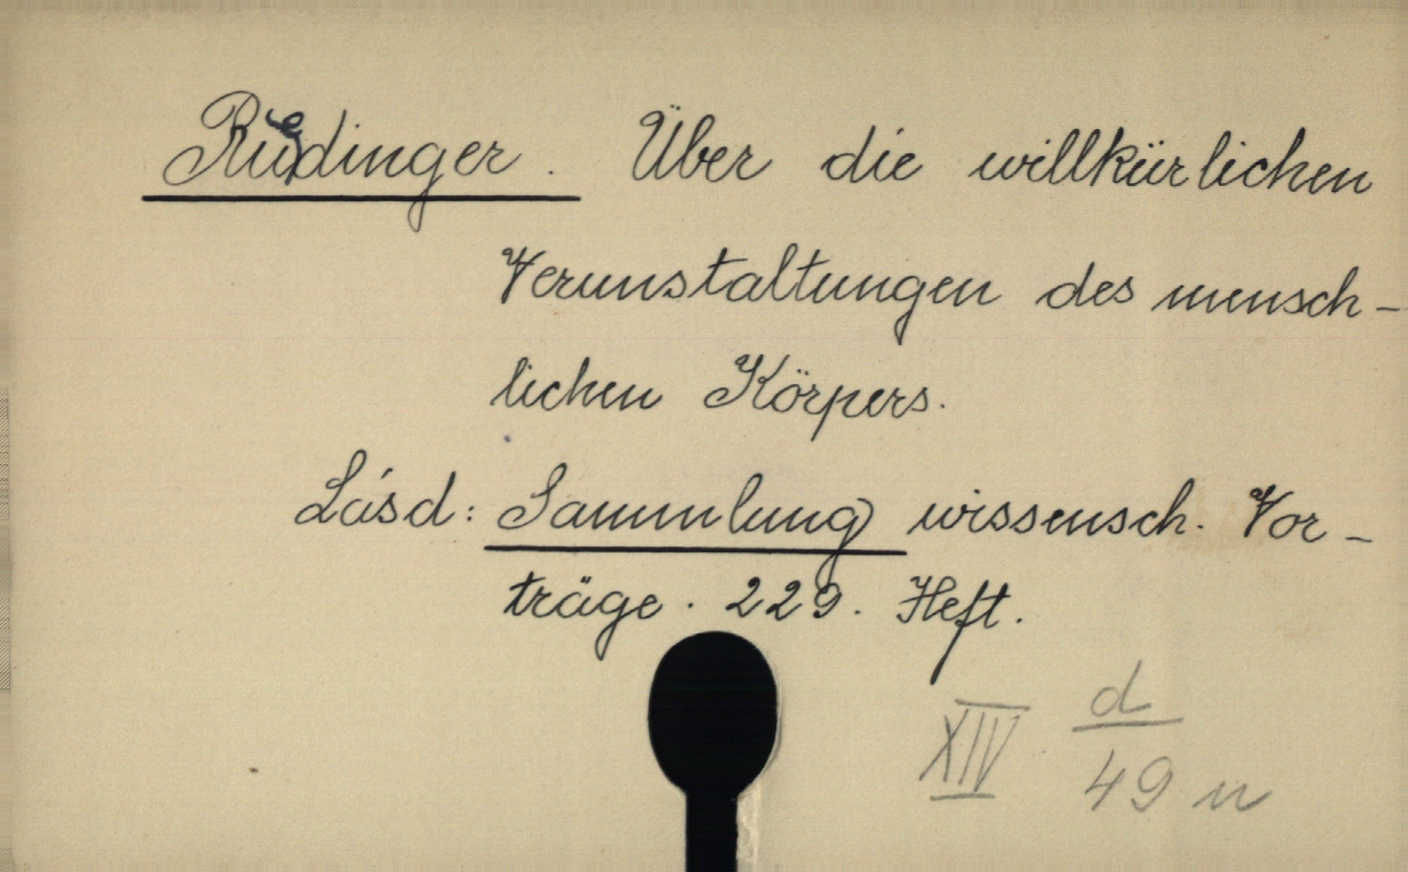 Ruedinger. Über die willkürlichen
Verunstaltungen des mensch-
lichen Körpers.
Lásd: Sammlung wissensch. Vor-
träge. 229. Heft.
XIV d/49 n